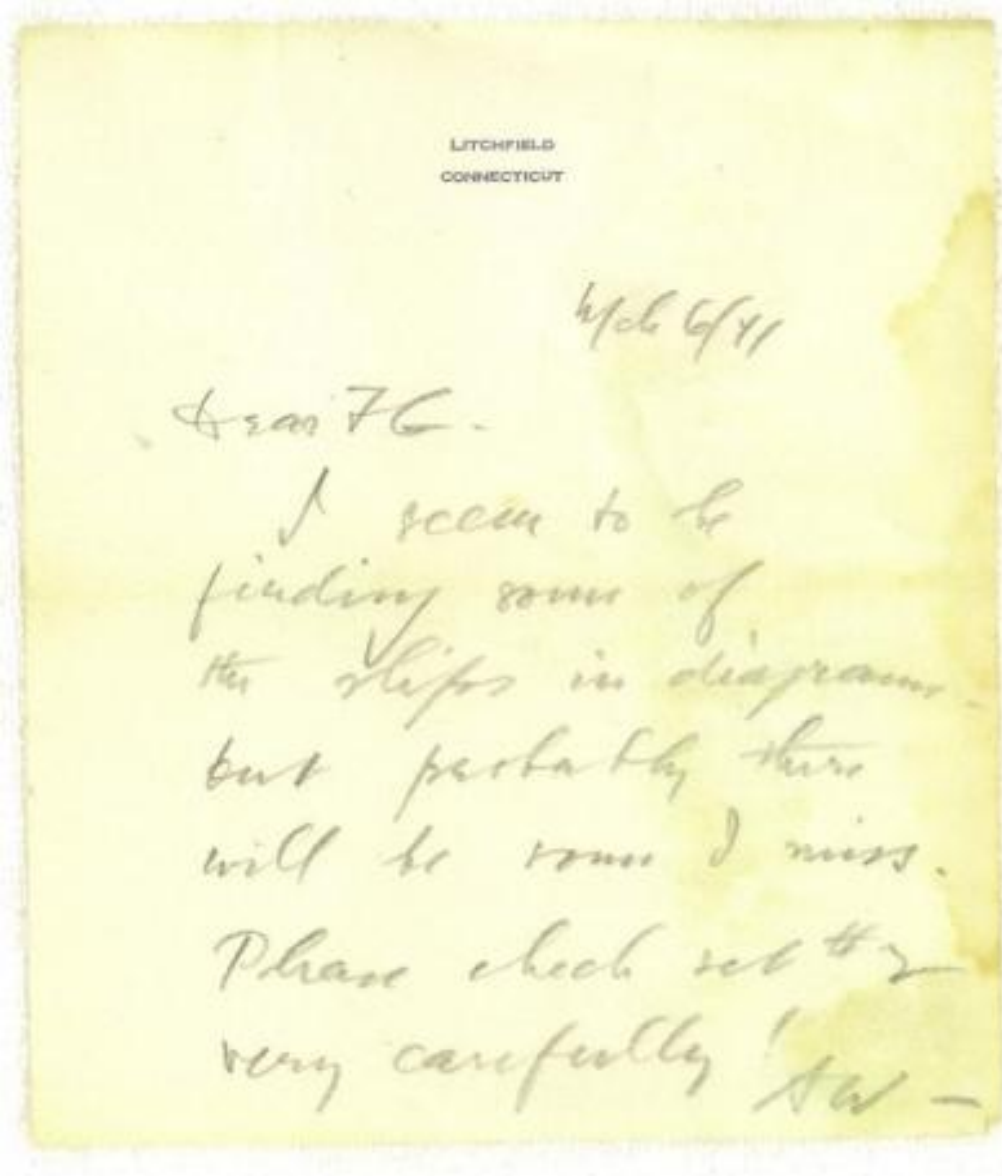 LITCHFIELD
CONNECTICUT
Mch 6/41
Dear F C.
I seem to be
finding some of
the slips in diagrams
but probably there
will be some I miss.
Please check set #2
very carefully!